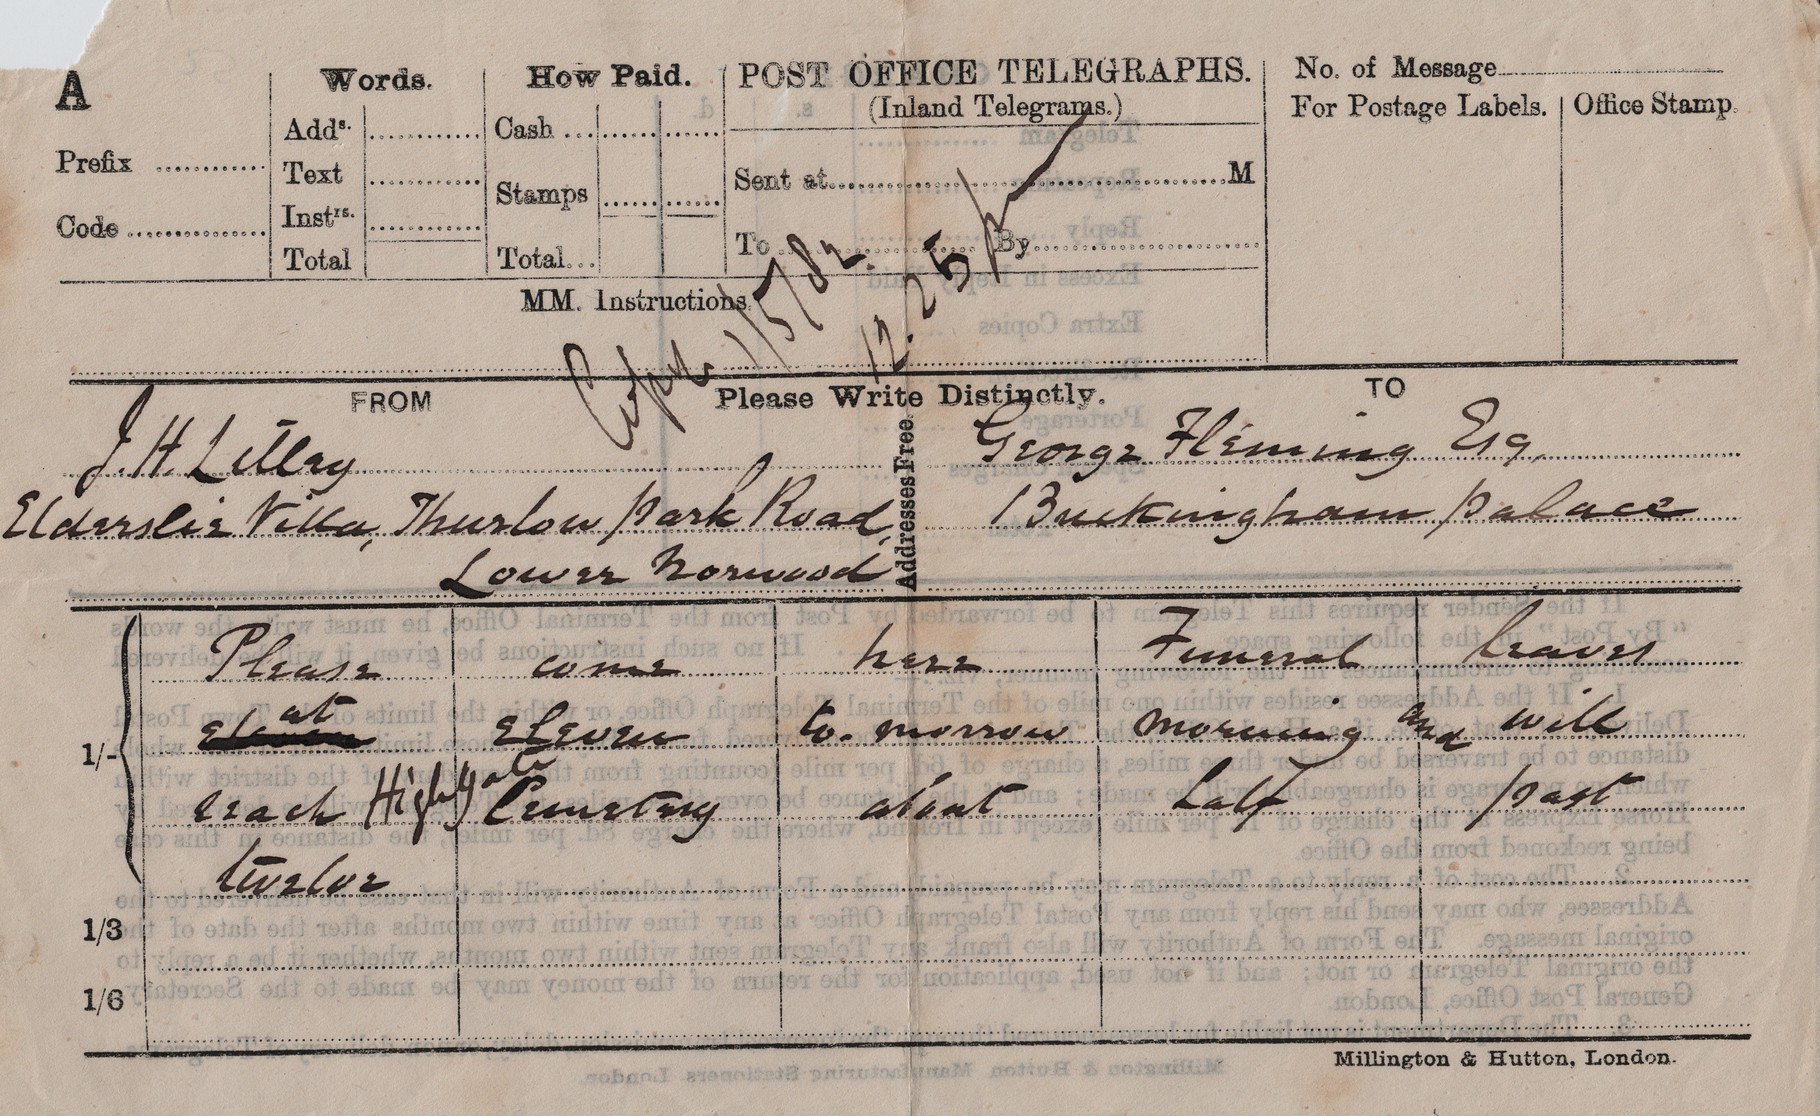 A
Prefix
Code
Words.
Adds.
Text
Instrs.
Total
How Paid.
Cash
Stamps
Total
POST OFFICE TELEGRAPHS.
(Inland Telegrams.)
Sent at M
To By
No. of Message
For Postage Labels. Office Stamp.
MM. Instructions
1/5/82.
12.25 p
FROM Please Write Distinctly. TO
J. H. Lilley
Elderslie Villa, Thurlow Park Road,
Lower Norwood
Addresses Free.
George Fleming Esq.
Buckingham Palace
Please come here Funeral leaves
at
Eleven Eleven to-morrow morning and will
1/-
reach Highgate Cemetery about half past
twelve
1/3
1/6
Millington & Hutton, London.